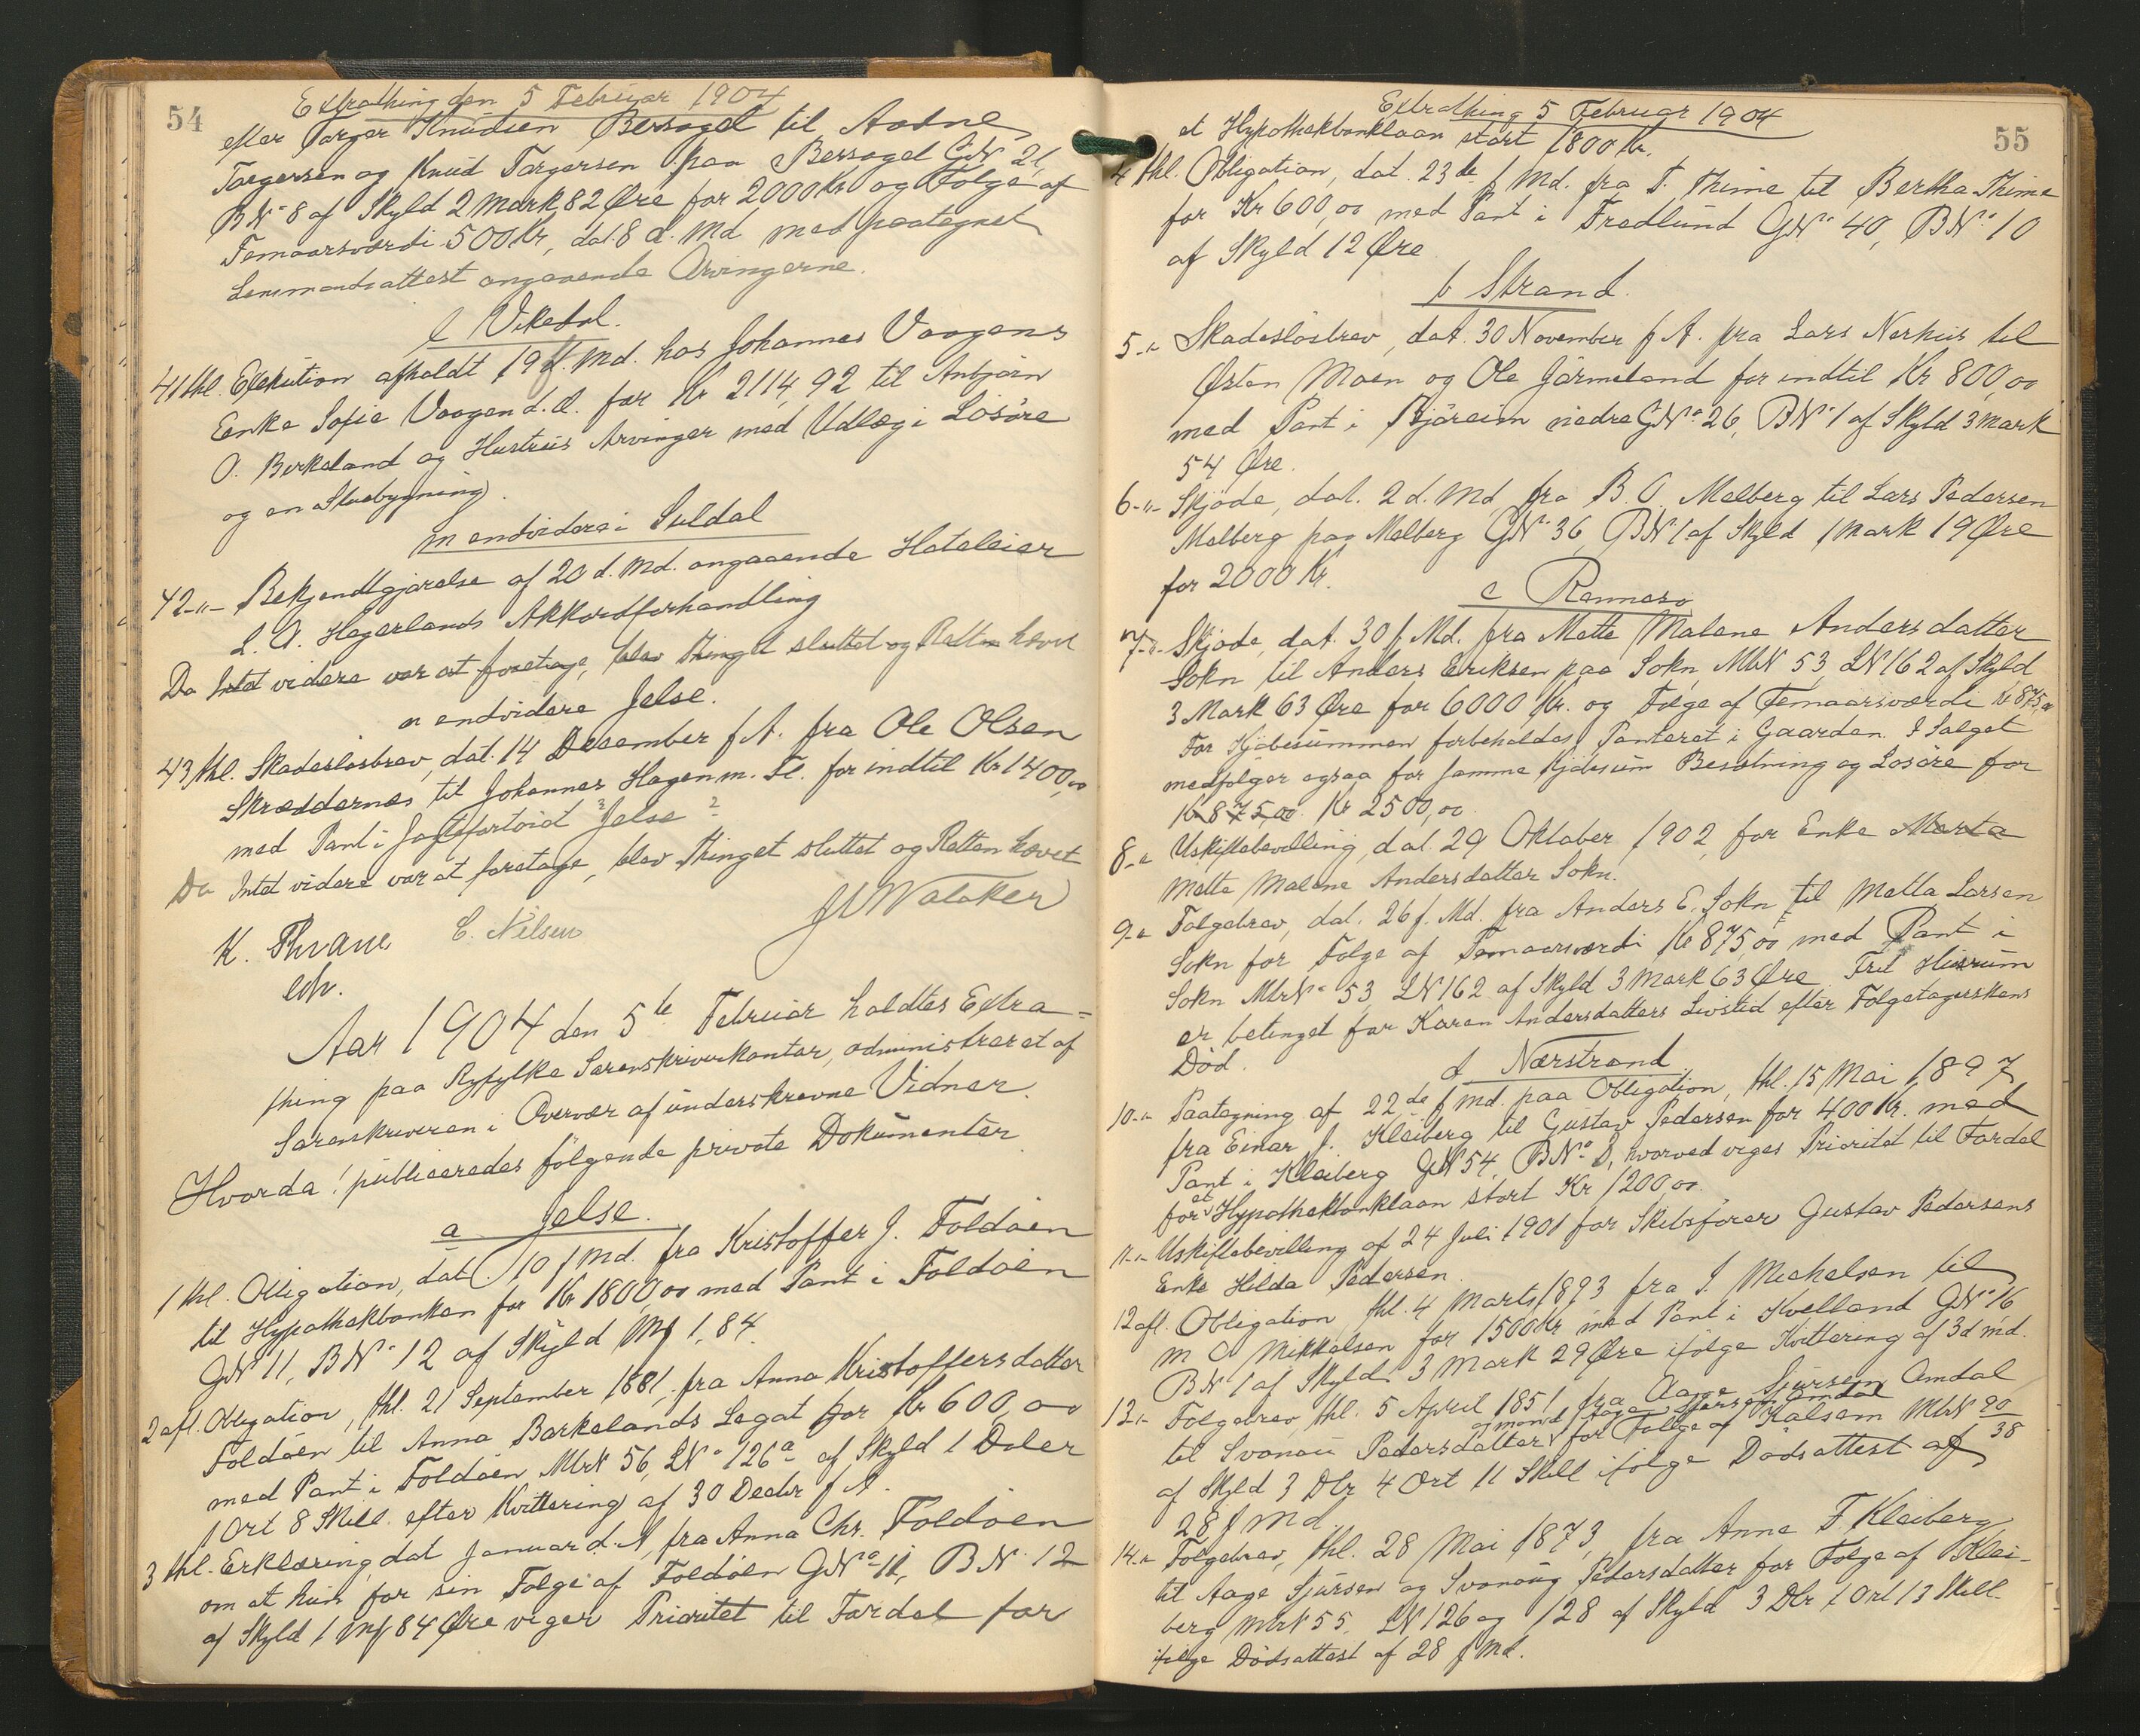 54
Extrathing den 5 Februar 1904
efter Torger Knudsen Bersaget til Aadne
Torgersen og Knud Torgersen paa Bersaget GN 21,
BN° 8 af Skyld 2 Mark 82 Øre for 2000 Kr og Følge af
Femaarsværdi 500 Kr, dat. 8 d. Md med paategnet
Lensmandsattest angaaende Arvingerne.
l Vikedal.
41 thl. Exekution afholdt 19 f. Md. hos Johannes Vaagens
Enke Sofie Vaagen d. æ. for Kr 2114,92 til Anbjørn
O. Birkeland og Hustrus Arvinger med Udlæg i Løsøre
og en Stuebygning.
m endvidere i Suldal
42 -"- Bekjendtgjørelse af 20 d. Md. angaaende Hoteleier
L. A. Hagerlands Akkordforhandling
Da Intet videre var at foretage, blev Thinget sluttet og Retten hævet
n endvidere Jelse.
43 thl. Skadesløsbrev, dat. 14 Desember f A. fra Ole Olsen
Skræddernes til Johannes Hagen m. Fl. for indtil Kr 1400,00
med Pant i Jagtfartøid "Jelse"
Da Intet videre var at foretage, blev Thinget sluttet og Retten hævet
JWValaker
K. Thrane C. Nilsen
Aar 1904 den 5te Februar holdtes Extra=
thing paa Ryfylke Sorenskriverkontor, administreret af
Sorenskriveren i Overvær af underskrevne Vidner.
Hvorda! publiceredes følgende private Dokumenter
a Jelse.
1 thl. Obligation, dat. 10 f Md. fra Kristoffer J. Foldøen
til Hypothekbanken for Kr 1800,00 med Pant i Foldøen
GN° 11, BN° 12 af Skyld Mk 1,84.
2 afl. Obligation, thl. 21 September 1881 fra Anna Kristoffersdatter
Foldøen til Anna Barkelands Legat for Kr 600,00
med Pant i Foldøen MtrN 56, LN° 126a af Skyld 1 Daler
1 Ort 8 Skill. efter Kvittering af 30 Decbr f A.
3 thl. Erklæring, dat Januar d. A, fra Anna Chr. Foldøen
om at hun for sin Følge af Foldøen GN° 11, BN° 12
af Skyld 1 Mk 84 Øre viger Prioritet til Fordel for
55
Extrathing 5 Februar 1904
et Hypothekbanklaan stort 1800 Kr.
4 thl. Obligation, dat. 23de f Md. fra T. Thime til Bertha Thime
for Kr 600,00 med Pant i Fredlund GN° 40, BN° 10
af Skyld 12 Øre
b Strand.
5 -"- Skadesløsbrev, dat. 30 November f A. fra Lars Nerhus til
Østen Moen og Ole Jørmeland for indtil Kr 800,00
med Pant i Bjøreim nedre GN° 26, BN° 1 af Skyld 3 Mark
54 Øre.
6 -"- Skjøde, dat. 2 d. Md, fra B. O. Melberg til Lars Pedersen
Melberg paa Melberg GN° 36, BN 1 af Skyld 1 Mark 19 Øre
for 2000 Kr.
c Rennesø
7 -"- Skjøde, dat. 30 f. Md. fra Mette Malene Andersdatter
Sokn til Anders Eriksen paa Sokn, MtrN 53, LN 162 af Skyld
3 Mark 63 Øre for 6000 Kr. og Følge af Femaarsværdi Kr 875,00
For Kjøbesummen forbeholdes Panteret i Gaarden. I Salget
medfølger ogsaa for samme Kjøbesum Besætning og Løsøre for
Kr 875,00. Kr 2500,00
8 -"- Uskiftebevilling, dat. 29 Oktober 1902, for Enke Marta
Mette Malene Andersdatter Sokn.
9 -"- Følgebrev, dat. 26 f. Md. fra Anders E. Sokn til Metta Larsen
Sokn for Følge af Femaarsværdi Kr 875,00 med Pant i
Sokn MtrN° 53, LN 162 af Skyld 3 Mark 63 Øre Frit Husrum
er betinget for Karen Andersdatters Livstid efter Følgetagerskens
Død.
d Nærstrand
10 -"- Paategning af 22de f Md. paa Obligation, thl. 15 Mai 1897
fra Einar J. Kleiberg til Gustav Pedersen for 400 Kr. med
Pant i Kleiberg GN 54, BN° 8, hvorved viges Prioritet til Fordel
for et Hypothekbanklaan stort Kr 1200,00.
11 -"- Uskiftebevilling af 24 Juli 1901 for Skibsfører Gustav Pedersens
Enke Hilda Pedersen.
12 afl. Obligation, thl. 4 Marts 1893 fra J. Mickelsen til
M O Mikkelsen for 1500 Kr med Pant i Kvelland GN° 16,
BN 1 af Skyld 3 Mark 29 Øre ifølge Kvittering af 3 d Md.
13 -"- Følgebrev, thl. 5 April 1851 fra Aage Sjursen Amdal
og mand Aage Sjursen Amdal
til Svanau Pedersdatter for Følge af Kalsem MtrN 20/38
af Skyld 3 Dlr 4 Ort 11 Skill ifølge Dødsattest af
28 f Md.
14 -"- Følgebrev, thl. 28 Mai 1873, fra Anne T Kleiberg
til Aage Sjursen og Svanaug Pedersdatter for Følge af Klei-
berg MtrN 55, LN 126 og 128 af Skyld 3 Dlr 1 Ort 13 Skill.
ifølge Dødsattest af 28 f Md.